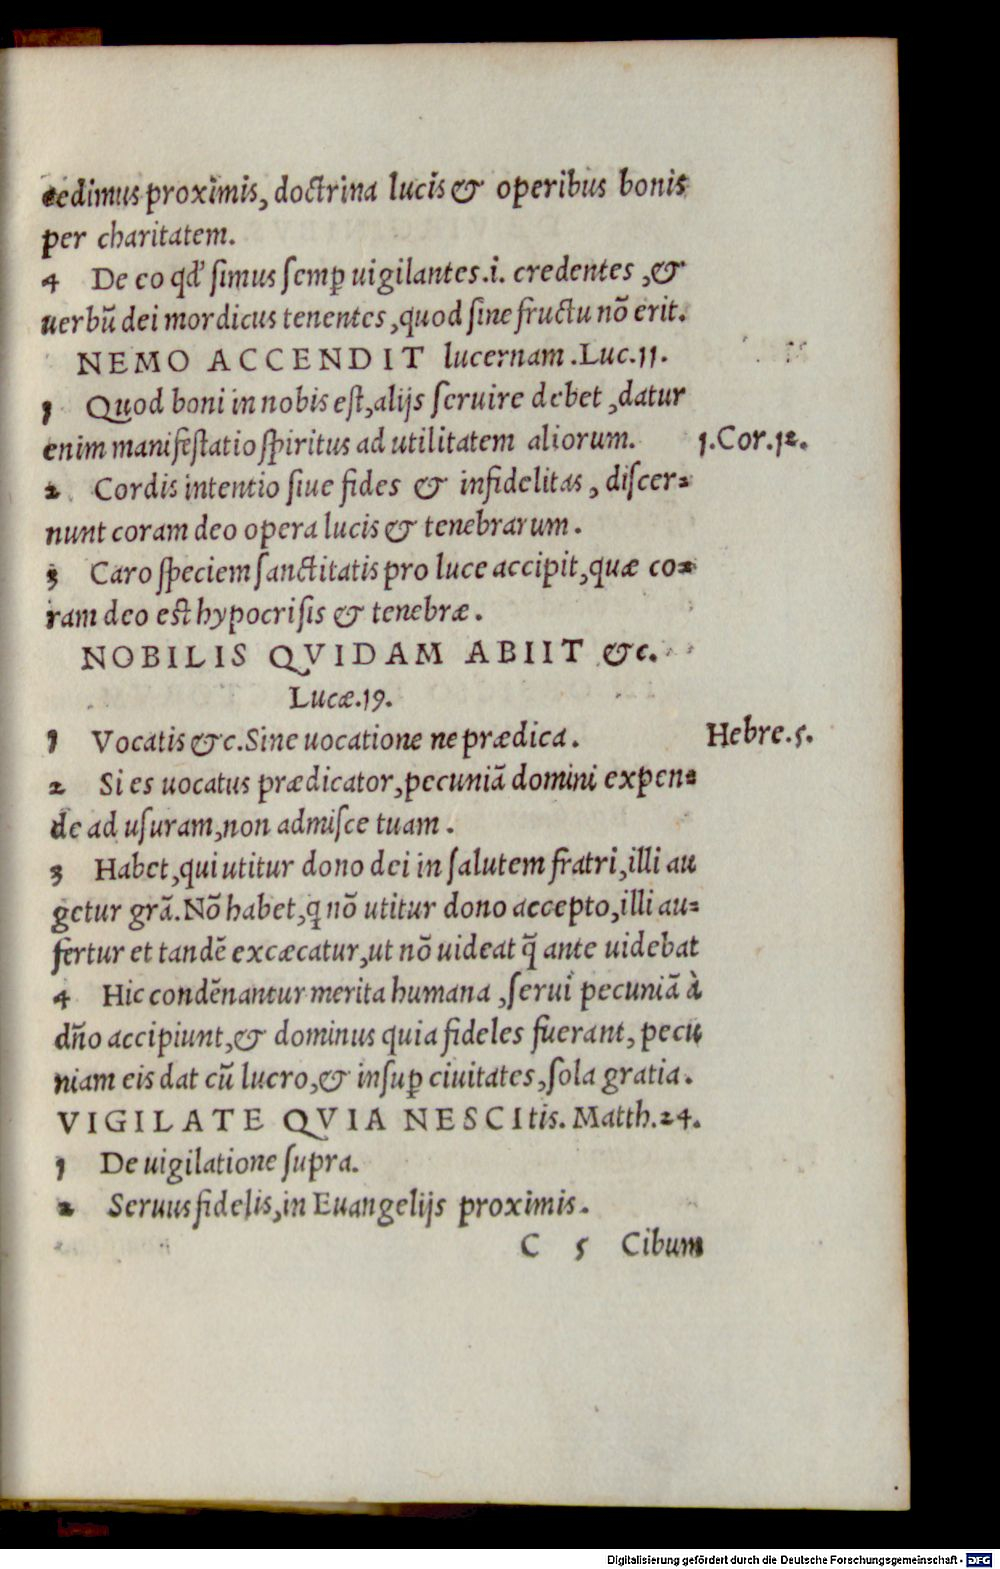 cedimus proximis, doctrina lucis & operibus bonis
per charitatem.
4 De eo qd' simus semꝑ uigilantes.i. credentes ,&
uerbũ dei mordicus tenentes, quod sine fructu nõ erit.
NEMO ACCENDIT lucernam .Luc.11.
1 Quod boni in nobis est, alijs seruire debet ,datur
enim manifestatio spiritus ad utilitatem aliorum. 1.Cor.12.
2 Cordis intentio siue fides & infidelitas , discer=
nunt coram deo opera lucis & tenebrarum .
3 Caro speciem sanctitatis pro luce accipit, quæ co=
ram deo est hypocrisis & tenebræ .
NOBILIS QVIDAM ABIIT &c.
Lucæ.19.
1 Vocatis &c. Sine uocatione ne prædica . Hebre.5.
2 Si es uocatus prædicator, pecuniã domini expen=
de ad usuram, non admisce tuam .
3 Habet, qui utitur dono dei in salutem fratri, illi au
getur grã. Nõ habet, q nõ utitur dono accepto, illi au=
fertur et tandẽ excæcatur, ut nõ uideat q̃ ante uidebat
4 Hic condẽnantur merita humana , serui pecuniã à
dño accipiunt, & dominus quia fideles fuerant, pecu
niam eis dat cũ lucro, & insuꝑ ciuitates, sola gratia .
VIGILATE QVIA NESCItis. Matth.24.
1 De uigilatione supra.
2 Seruus fidelis, in Euangelijs proximis .
C 5 Cibum
Digitalisierung gefördert durch die Deutsche Forschungsgemeinschaft - DFG